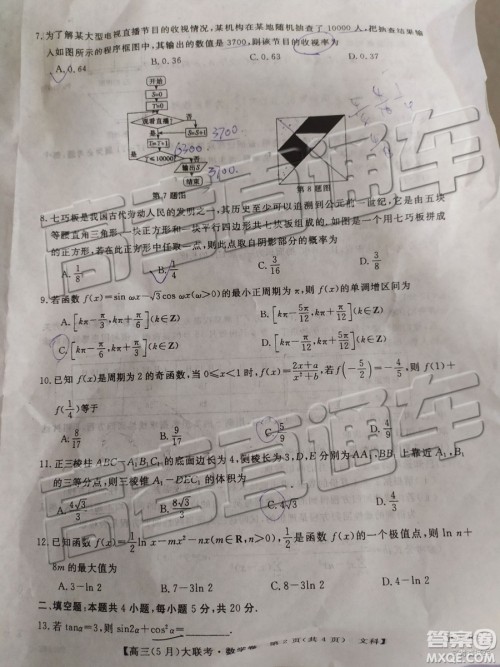 7.为了解某大型电视直播节目的收视情况，某机构在某地随机抽查了10000人，把抽查结果输
入如图所示的程序框图中，其输出的数值是3700，则该节目的收视率为
A. 0.64 B. 0.36 C. 0.63 D. 0.37
开始
S=0
T=0
收看直播?
是
否
S=S+1
T=T+1
T≤10000
是
否
输出S
结束
6300
3700
3700.
第7题图
第8题图
8.七巧板是我国古代劳动人民的发明之一，其历史至少可以追溯到公元前一世纪，它是由五块
等腰直角三角形、一块正方形和一块平行四边形共七块板组成的，如图是一个用七巧板拼成
的正方形，若在此正方形中任取一点，则此点取自阴影部分的概率为
A. 1/8 B. 1/4 C. 3/16 D. 3/8
9.若函数 f(x)=sin ωx-√3cos ωx(ω>0)的最小正周期为π，则f(x)的单调增区间为
A. [kπ-π/3, kπ+π/6](k∈Z) B. [kπ-π/12, kπ+5π/12](k∈Z)
C. [kπ-π/6, kπ+π/3](k∈Z) D. [kπ-5π/12, kπ+π/12](k∈Z)
10.已知f(x)是周期为2的奇函数，当0≤x<1时，f(x)=(2x+a)/(x²+b)，若f(-5/2)=-4/5，则f(1)+
f(1/4)等于
A. 8/17 B. 9/17 C. 5/9 D. 4/5
11.正三棱柱ABC-A₁B₁C₁的底面边长为4，侧棱长为3，D、E分别为AA₁、BB₁上靠近A₁、B₁
的三等分点，则三棱锥A₁-DEC₁的体积为
A. 4√3/3 B. 8√3/3 C. 4√3 D. 4/3
12.已知函数 f(x)=1/2 ln x-mx²-nx(m∈R，n>0)，1/2是函数f(x)的一个极值点，则ln n+
8m的最大值为
A. 3-ln 2 B. 7-3ln 2 C. 8-3ln 2 D. 4-ln 2
二、填空题：本题共4小题，每小题5分，共20分。
13.若tanα=3，则sin2α+cos²α=
【高三(5月)大联考·数学卷 第2页(共4页) 文科】
高考直通车
高考直通车